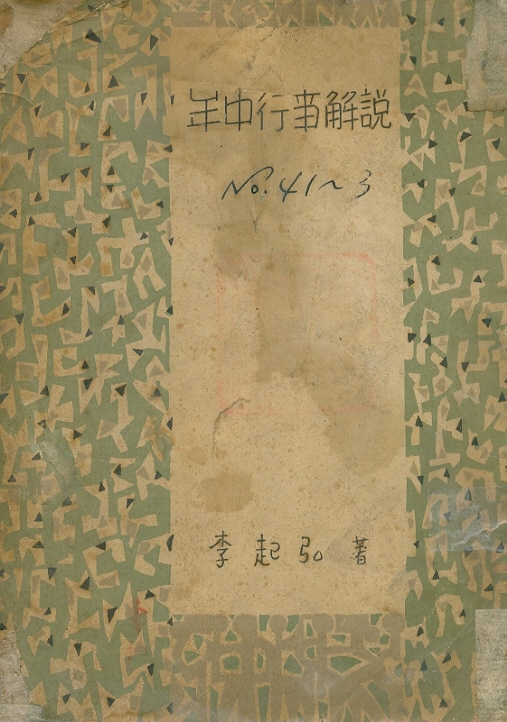 年中行事解説
No. 41~3
李起弘 著